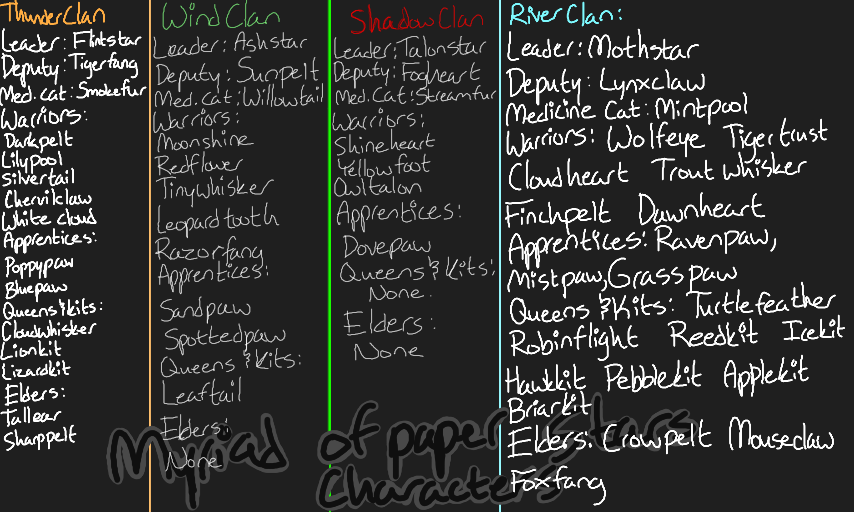 ThunderClan
Leader: Flintstar
Deputy: Tigerfang
Med. cat: Smokefur
Warriors:
Darkpelt
Lilypool
Silvertail
Chervilclaw
White cloud
Apprentices:
Poppypaw
Bluepaw
Queens & kits:
Cloudwhisker
Lionkit
Lizardkit
Elders:
Tallear
Sharppelt
WindClan
Leader: Ashstar
Deputy: Sunpelt
Med. cat: Willowtail
Warriors:
Moonshine
Redflower
Tinywhisker
Leopardtooth
Razorfang
Apprentices:
Sandpaw
Spottedpaw
Queens & Kits:
Leaftail
Elders:
None
ShadowClan
Leader: Talonstar
Deputy: Fogheart
Med. Cat: Streamfur
Warriors:
Shineheart
Yellowfoot
Owltalon
Apprentices:
Dovepaw
Queens & Kits:
None.
Elders:
None
RiverClan:
Leader: Mothstar
Deputy: Lynxclaw
Medicine Cat: Mintpool
Warriors: Wolfeye Tigertrust
Cloudheart Trout whisker
Finchpelt Dawnheart
Apprentices: Ravenpaw,
Mistpaw, Grasspaw
Queens & Kits: Turtlefeather
Robinflight Reedkit Icekit
Hawkkit Pebblekit Applekit
Briarkit
Elders: Crowpelt Mouseclaw
Foxfang
Myriad of paper stars
Characters